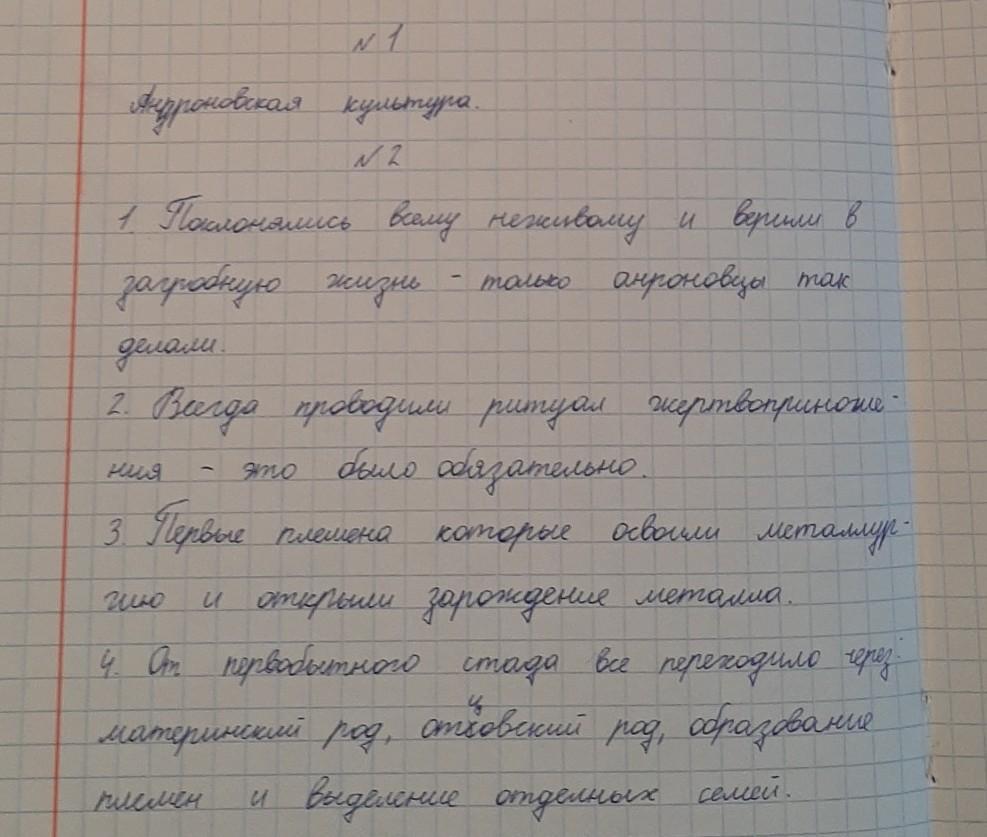 № 1
Андроновская культура.
№ 2
1. Поклонялись всему неживому и верили в
загробную жизнь - только анроновцы так
делали.
2. Всегда проводили ритуал жертвоприноше-
ния - это было обязательно.
3. Первые племена которые освоили металлур-
гию и открыли зарождение металла.
4. От первобытного стада все переходило через
материнский род, отцовский род, образование
племен и выделение отделных семей.